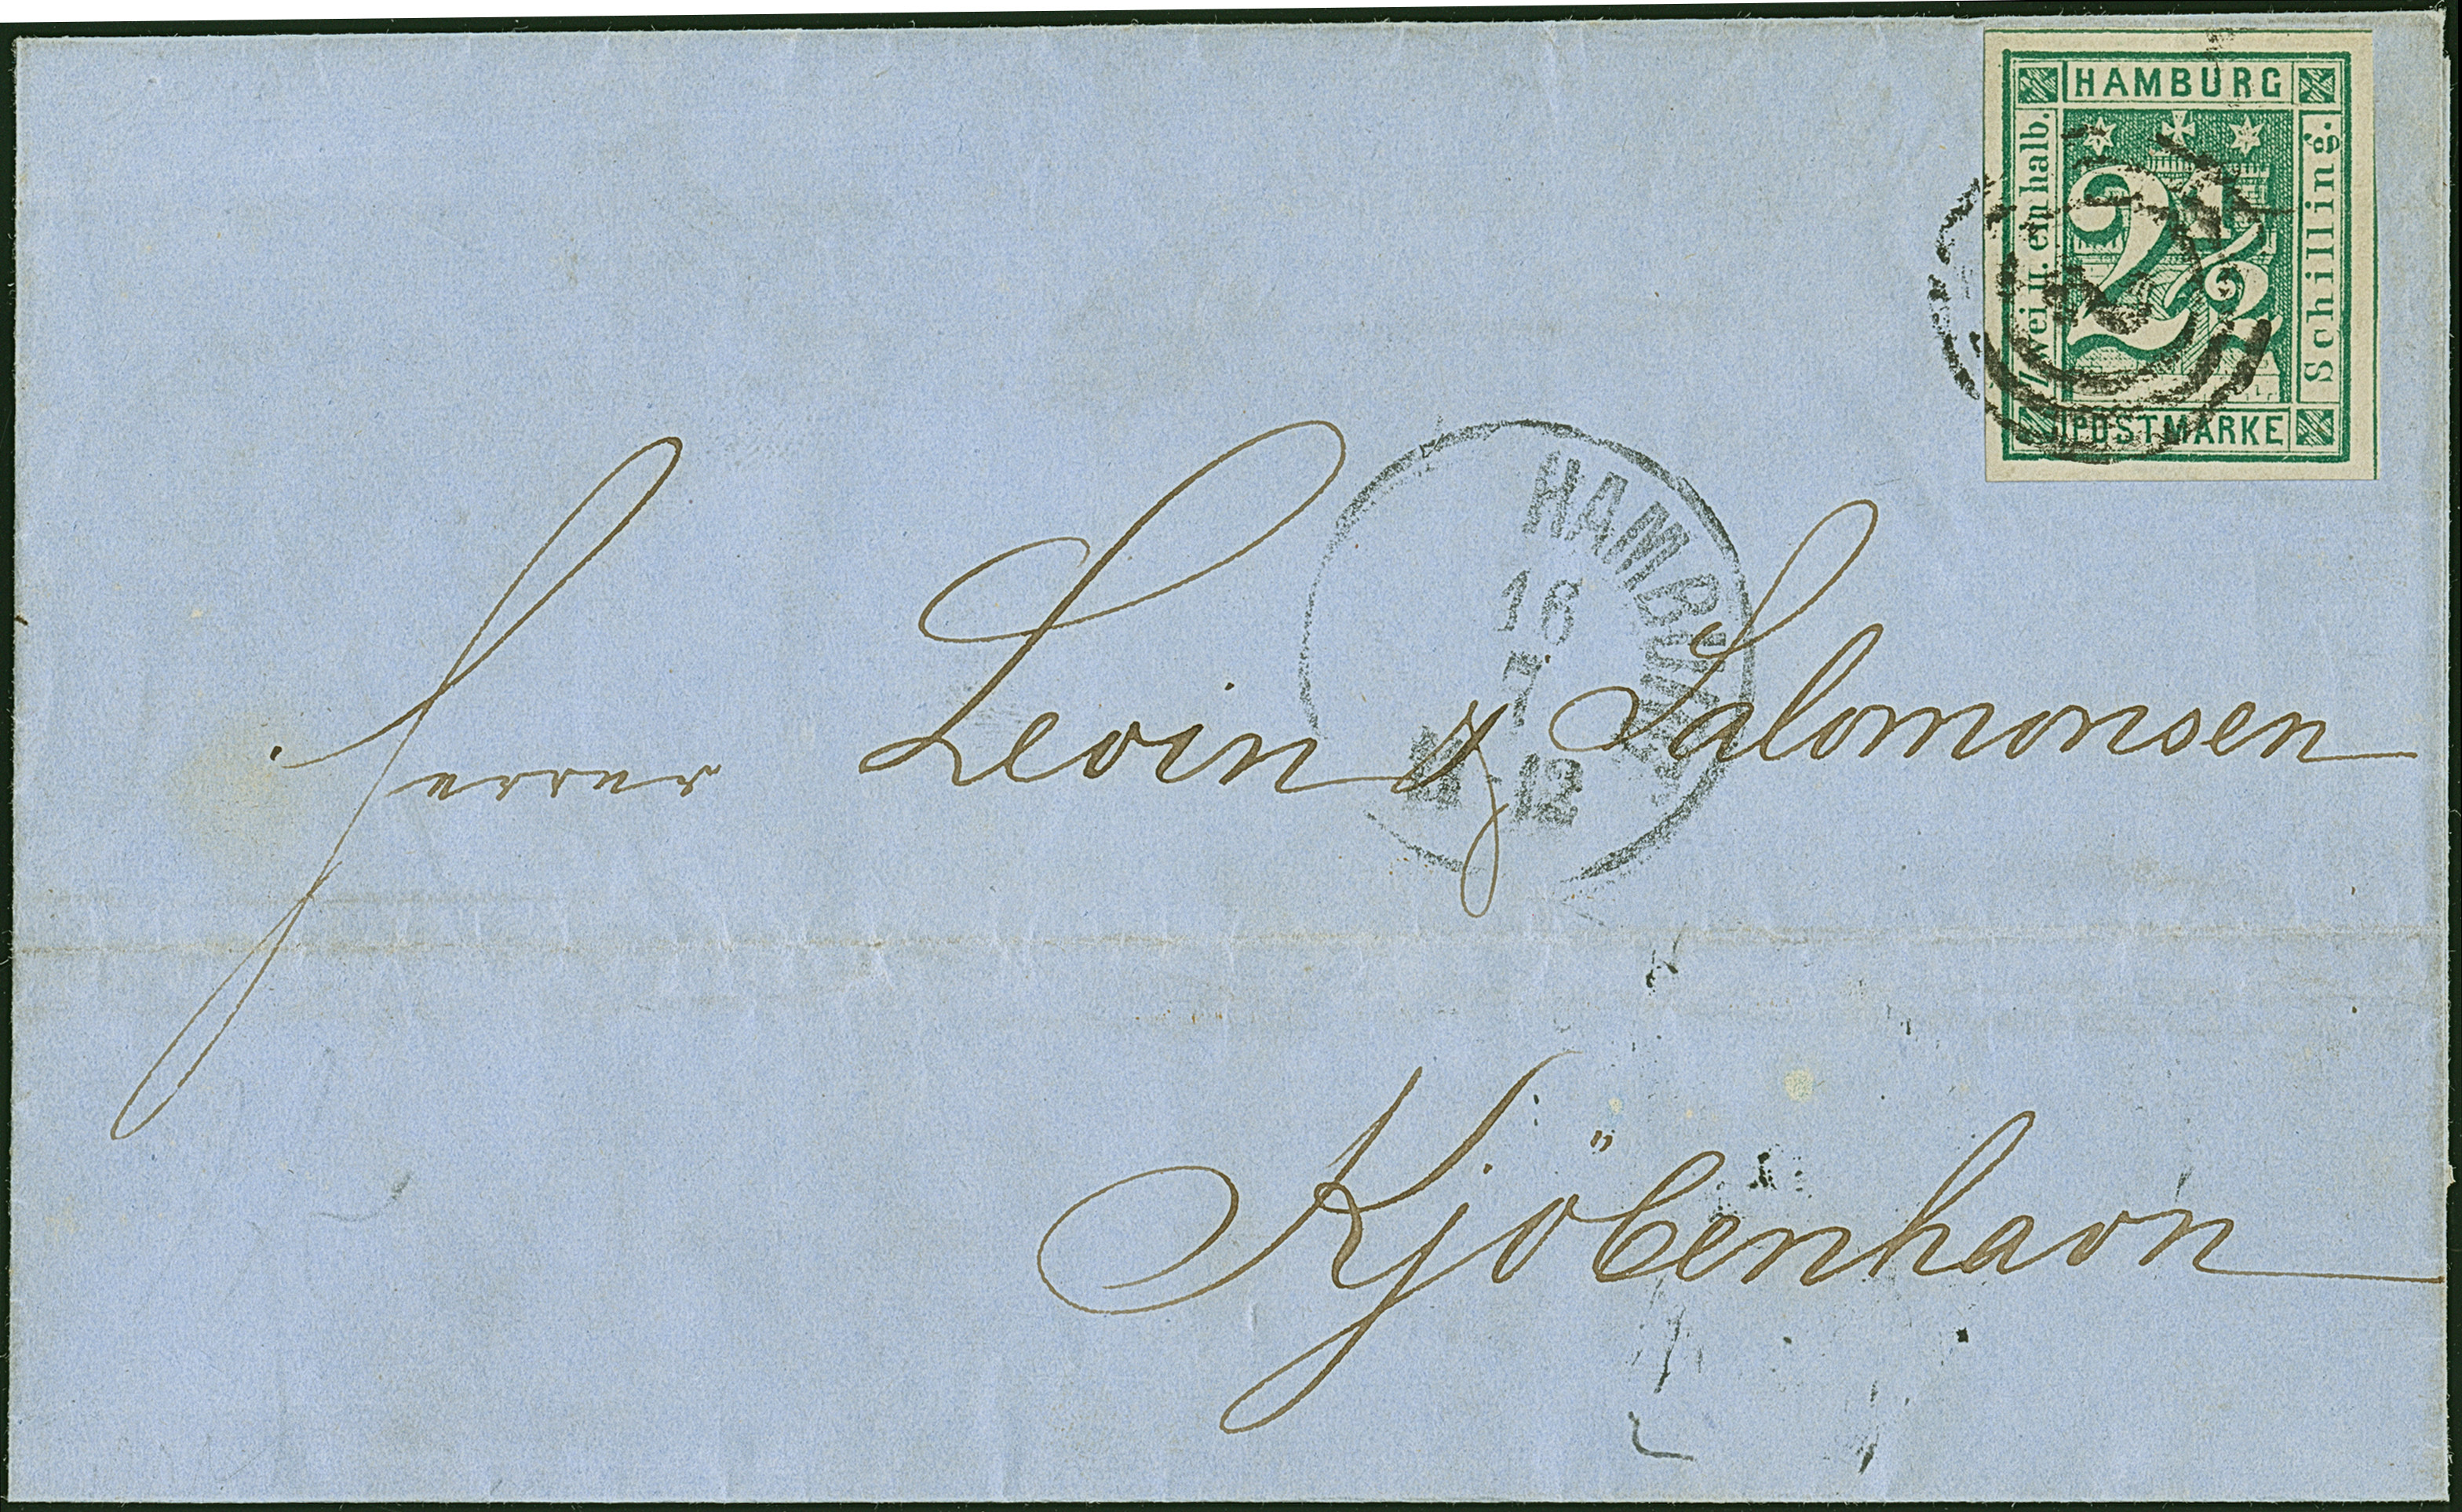 HAMBURG
Zwei u. ein halb.
2 1/2
Schilling.
POSTMARKE
HAMBURG
16
7
12
Herrer Levin & Salomonsen
Kjöbenhavn